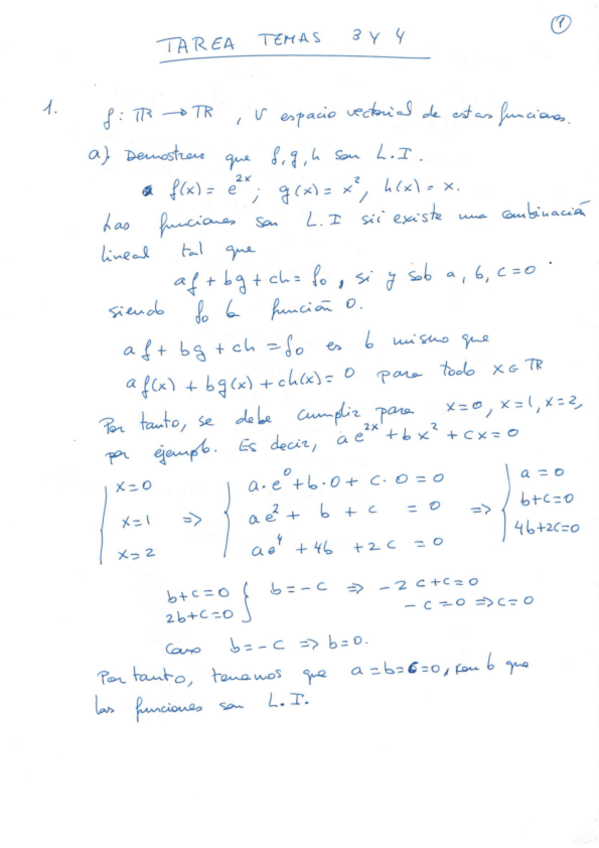 1
TAREA TEMAS 3 Y 4
1. f: ℝ → ℝ, V espacio vectorial de estas funciones.
a) Demostrar que f, g, h son L.I.
f(x) = e^{2x}; g(x) = x², h(x) = x.
Las funciones son L.I sii existe una combinación
lineal tal que
af + bg + ch = f₀, si y solo a, b, c = 0
siendo f₀ la función 0.
af + bg + ch = f₀ es lo mismo que
af(x) + bg(x) + ch(x) = 0 para todo x ∈ ℝ
Por tanto, se debe cumplir para x=0, x=1, x=2,
por ejemplo. Es decir, ae^{2x} + bx² + cx = 0
x=0 a·e⁰ + b·0 + c·0 = 0 a = 0
x=1 => ae² + b + c = 0 => b+c=0
x=2 ae⁴ + 4b + 2c = 0 4b+2c=0
b+c=0 } b=-c => -2c+c=0
2b+c=0 -c=0 => c=0
Como b=-c => b=0.
Por tanto, tenemos que a=b=c=0, con lo que
las funciones son L.I.